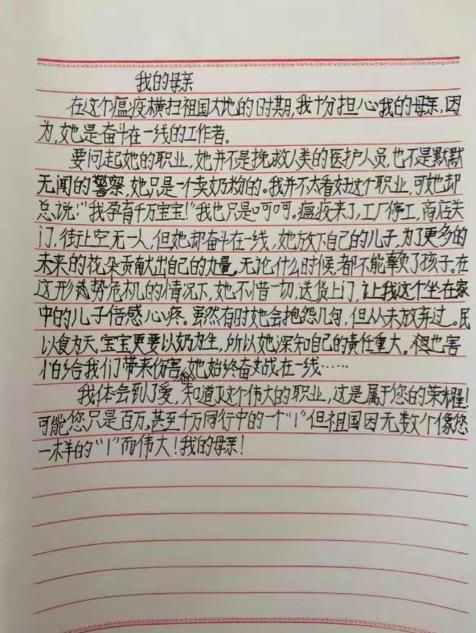 我的母亲
在这个瘟疫横扫祖国大地的时期,我十分担心我的母亲,因
为,她是奋斗在一线的工作者。
要问起她的职业,她并不是挽救人类的医护人员,也不是默默
无闻的警察,她只是一个卖奶粉的。我并不太看好这个职业,可她却
总说:“我孕育千万宝宝!”我也只是呵呵。瘟疫来了,工厂停工,商店关
门,街上空无一人,但她却奋斗在一线,她放下自己的儿子,为了更多的
未来的花朵贡献出自己的力量。无论什么时候,都不能辜负了孩子。在
这形式势危机的情况下,她不惜一切,送货上门,让我这个坐在家
中的儿子倍感心疼。虽然有时她会抱怨几句,但从未放弃过。民
以食为天,宝宝更要以奶为生,所以她深知自己的责任重大。但也害
怕给我们带来伤害,她始终奋战在一线……
我体会到了爱,知道了这个伟大的职业,这是属于您的荣耀!
可能您只是百万,甚至千万同行中的一个“1”但祖国因无数个像您
一样的“1”而伟大!我的母亲!